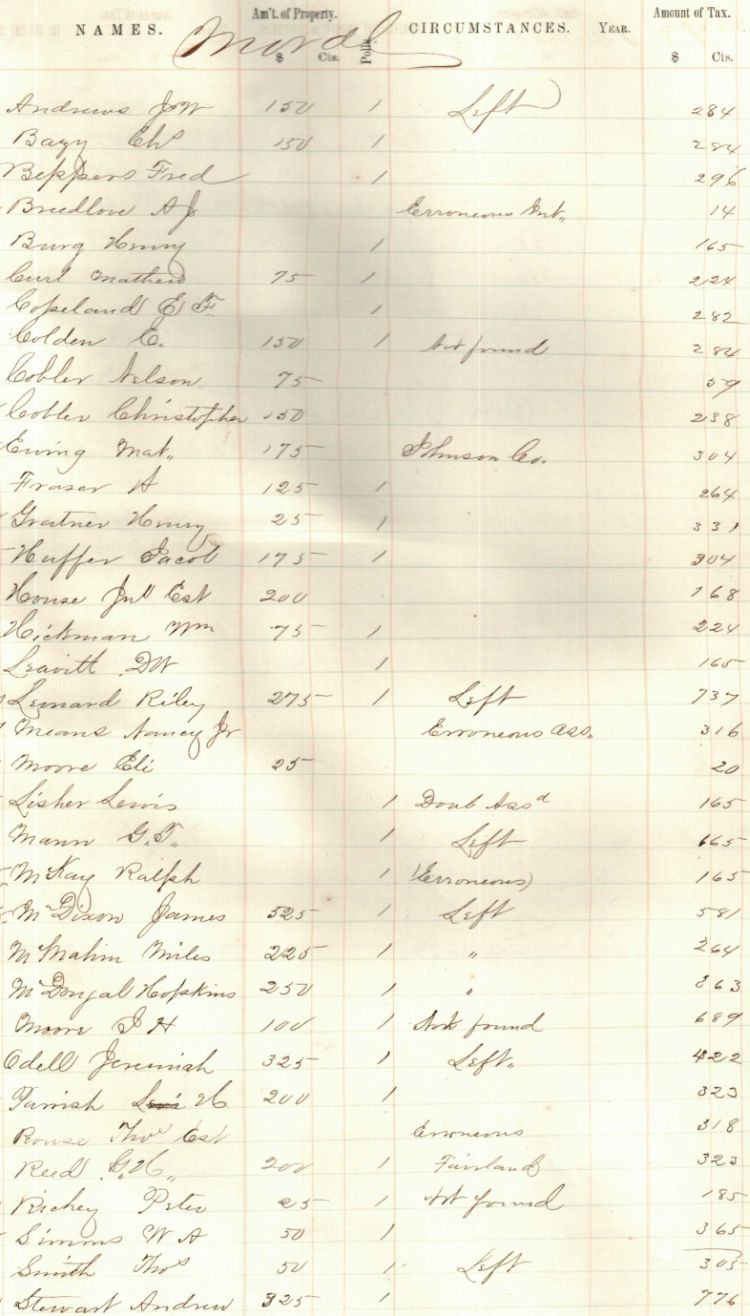 NAMES. Am't. of Property. $ Cts. Polls. CIRCUMSTANCES. YEAR. Amount of Tax. $ Cts.
Moral
Andrews J W 150 1 Left 284
Bazy Chs 150 1 284
Beppers Fred 1 296
Breedlove A J Erroneous Int. 14
Burg Henry 1 165
Curl Mathew 75 1 224
Copeland E F. 1 282
Colden C. 150 1 Not found 284
Cobler Nelson 75 59
Cobler Christopher 150 238
Ewing Mat. 175 Johnson Co. 304
Fraser A 125 1 264
Gratner Henry 25 1 331
Huffer Jacob 175 1 304
House Jnl Est 200 168
Hickman Wm 75 1 224
Leavitt DW 1 165
Lennard Riley 275 1 Left 737
Means Nancy Jr Erroneous Ass. 316
Moore Eli 25 20
Lisher Lewis 1 Doub Assd 165
Mann G.T. 1 Left 165
McKay Ralph 1 (Erroneous) 165
McDixon James 525 1 Left 581
McMahin Miles 225 1 " 264
McDougal Hopkins 250 1 " 863
Moore J H 100 1 Not found 689
Odell Jeremiah 325 1 Left. 422
Parrish H 200 1 323
Rouse Thos Est Erroneous 318
Reed G.H. 200 1 Fairland 323
Richey Peter 25 1 Not found 185
Simons W A 50 1 365
Smith Thos 50 1 Left 305
Stewart Andrew 325 1 776